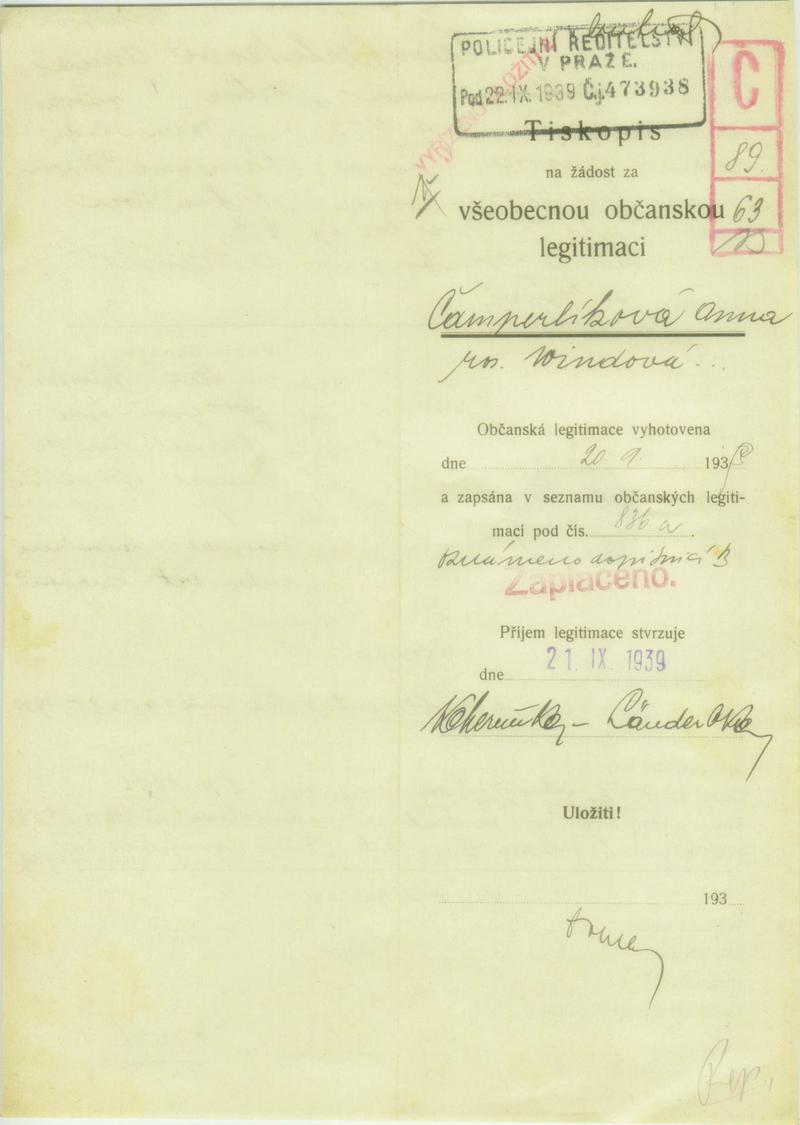 POLICEJNÍ ŘEDITELSTVÍ
V PRAZE.
Pod 22. IX. 1939 Č.j. 473938
Č
89.
63
Tiskopis
na žádost za
všeobecnou občanskou
legitimaci
Čamperlíková Anna
roz. Windová
Občanská legitimace vyhotovena
dne 20. 9. 1939
a zapsána v seznamu občanských legiti-
mací pod čís. 836 a
Zaplaceno.
Příjem legitimace stvrzuje
dne 21. IX. 1939
Uložiti!
193